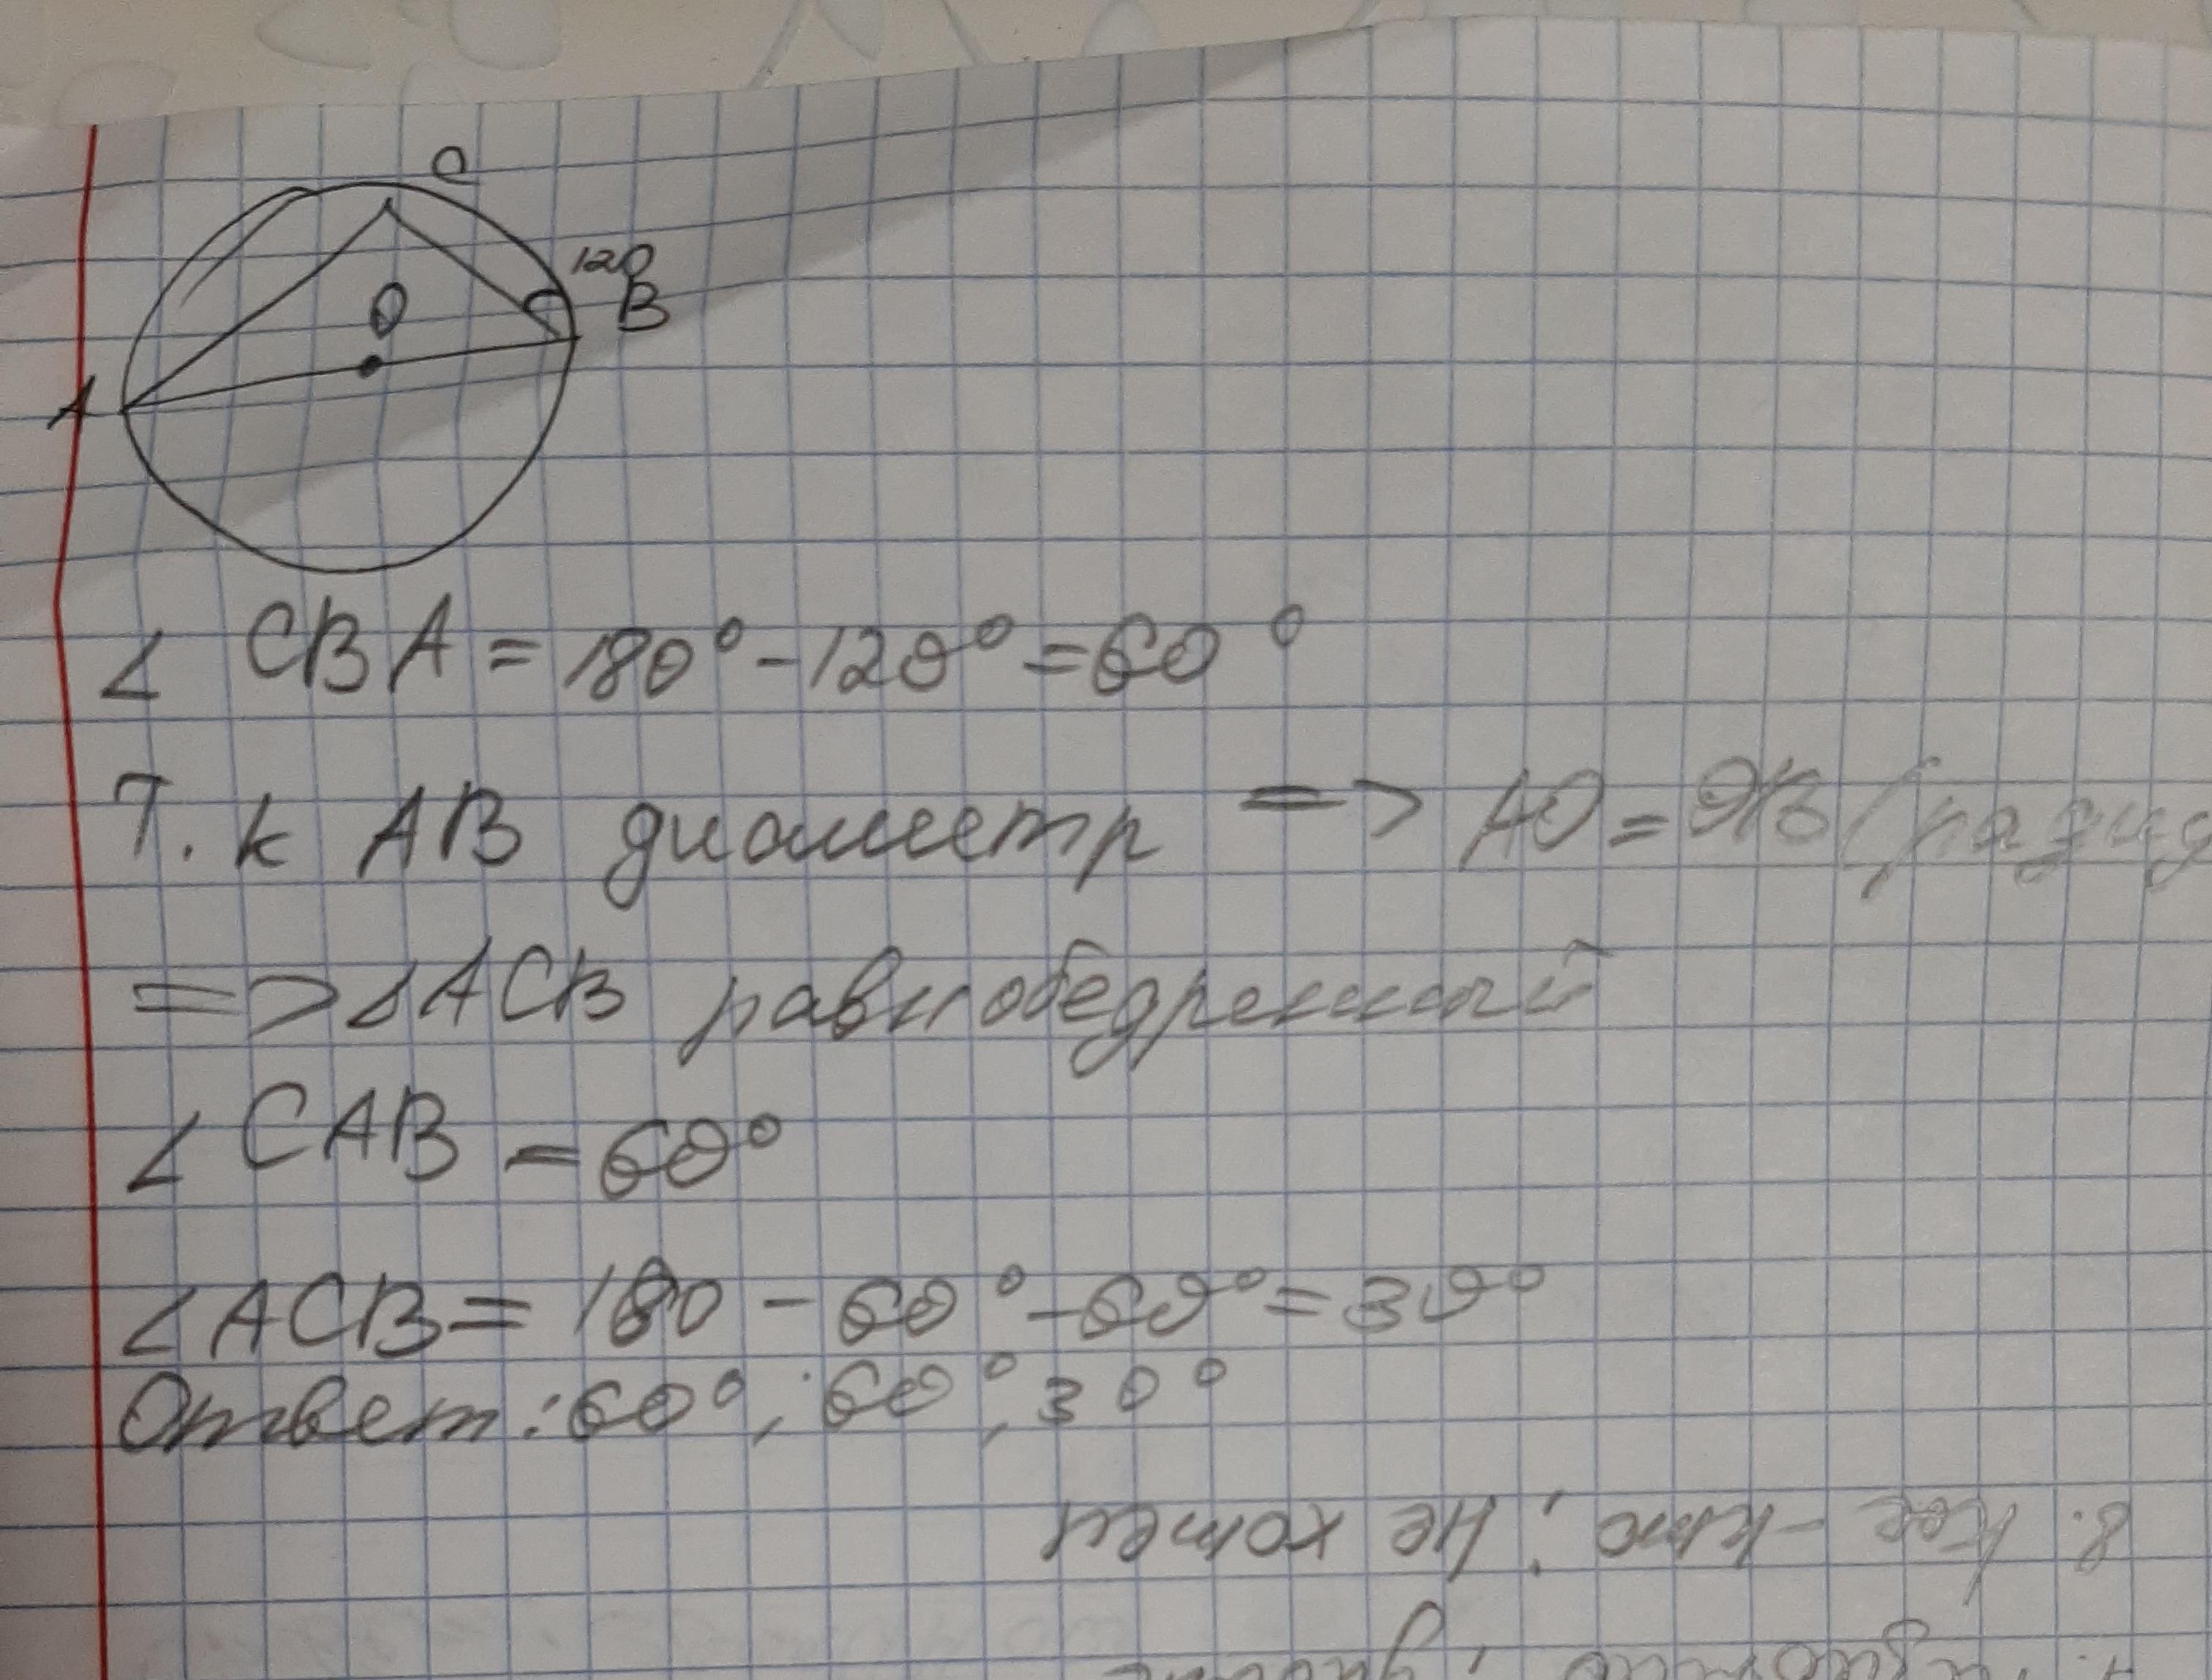 C
120
O
B
A
∠ CBA = 180° - 120° = 60°
Т.к AB диаметр => AO = OB (радиу
=> △ACB равнобедренный
∠ CAB = 60°
∠ACB = 180 - 60° - 60° = 30°
Ответ: 60°; 60°, 30°
8. Кое-кто; Не хотел